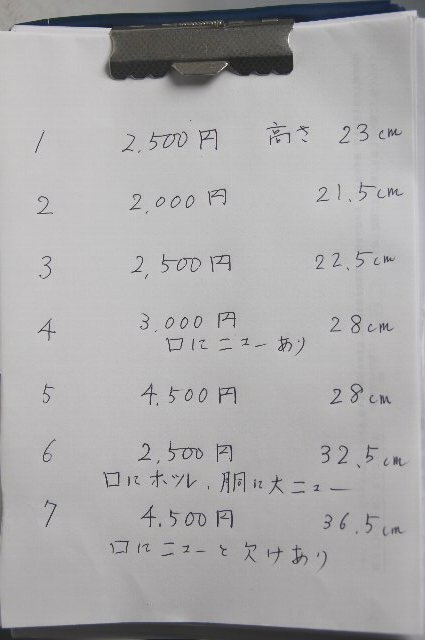 1 2,500円 高さ 23cm
2 2.000円 21.5cm
3 2,500円 22.5cm
4 3.000円 28cm
口にニューあり
5 4.500円 28cm
6 2,500円 32.5cm
口にホツレ、胴に大ニュー
7 4.500円 36.5cm
口にニューと欠けあり